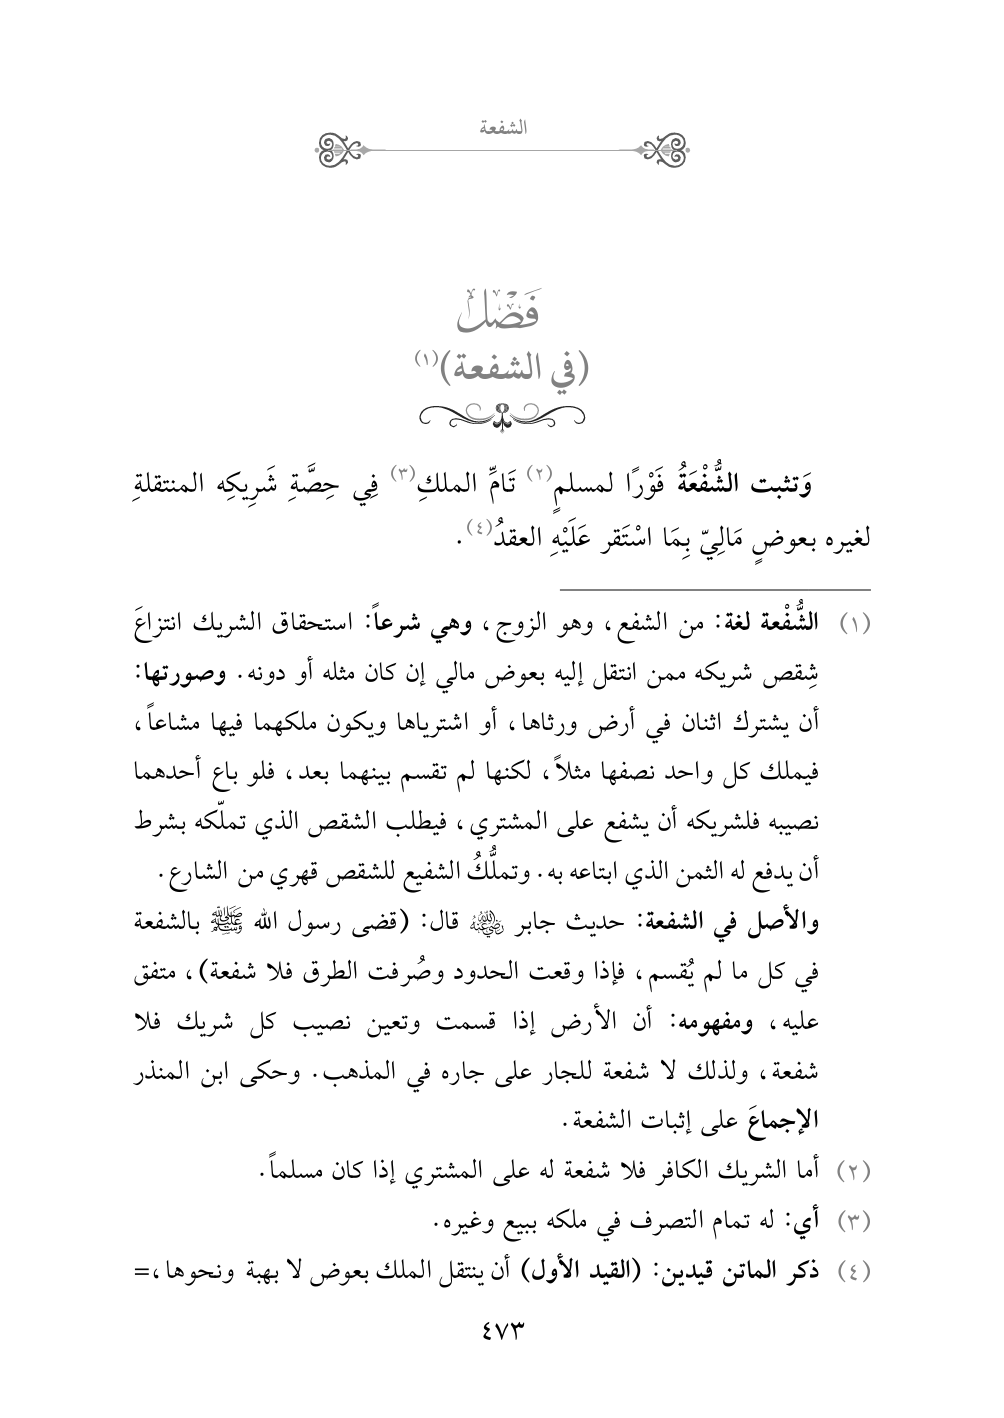 الشفعة
فَصْلٌ
(في الشفعة)(١)
وَتثبت الشُّفْعَةُ فَوْرًا لمسلمٍ(٢) تَامِّ الملكِ(٣) فِي حِصَّةِ شَرِيكِه المنتقلةِ
لغيره بعوضٍ مَالِيّ بِمَا اسْتَقر عَلَيْهِ العقدُ(٤).
(١) الشُّفْعة لغة: من الشفع، وهو الزوج، وهي شرعاً: استحقاق الشريك انتزاعَ
شِقص شريكه ممن انتقل إليه بعوض مالي إن كان مثله أو دونه. وصورتها:
أن يشترك اثنان في أرض ورثاها، أو اشترياها ويكون ملكهما فيها مشاعاً،
فيملك كل واحد نصفها مثلاً، لكنها لم تقسم بينهما بعد، فلو باع أحدهما
نصيبه فلشريكه أن يشفع على المشتري، فيطلب الشقص الذي تملّكه بشرط
أن يدفع له الثمن الذي ابتاعه به. وتملُّكُ الشفيع للشقص قهري من الشارع.
والأصل في الشفعة: حديث جابر رضي الله عنه قال: (قضى رسول الله ﷺ بالشفعة
في كل ما لم يُقسم، فإذا وقعت الحدود وصُرفت الطرق فلا شفعة)، متفق
عليه، ومفهومه: أن الأرض إذا قسمت وتعين نصيب كل شريك فلا
شفعة، ولذلك لا شفعة للجار على جاره في المذهب. وحكى ابن المنذر
الإجماعَ على إثبات الشفعة.
(٢) أما الشريك الكافر فلا شفعة له على المشتري إذا كان مسلماً.
(٣) أي: له تمام التصرف في ملكه ببيع وغيره.
(٤) ذكر الماتن قيدين: (القيد الأول) أن ينتقل الملك بعوض لا بهبة ونحوها،=
٤٧٣